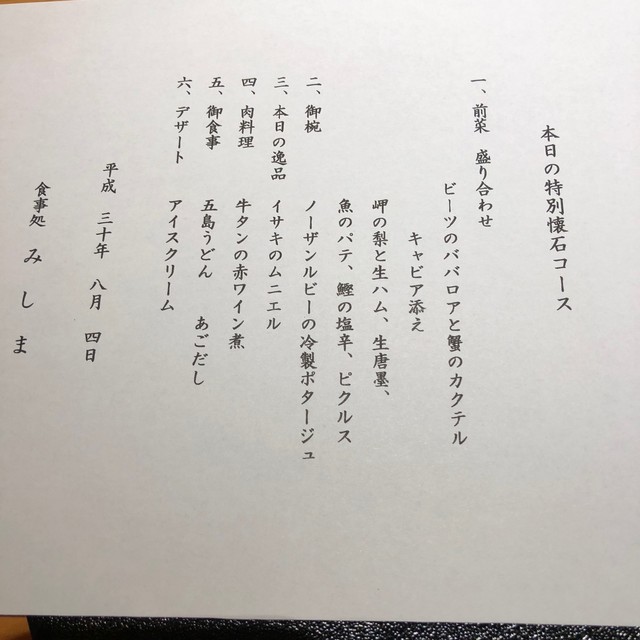 本日の特別懐石コース
一、前菜 盛り合わせ
ビーツのババロアと蟹のカクテル
キャビア添え
岬の梨と生ハム、生唐墨、
魚のパテ、鰹の塩辛、ピクルス
二、御椀 ノーザンルビーの冷製ポタージュ
三、本日の逸品 イサキのムニエル
四、肉料理 牛タンの赤ワイン煮
五、御食事 五島うどん あごだし
六、デザート アイスクリーム
平成 三十年 八月 四日
食事処 みしま